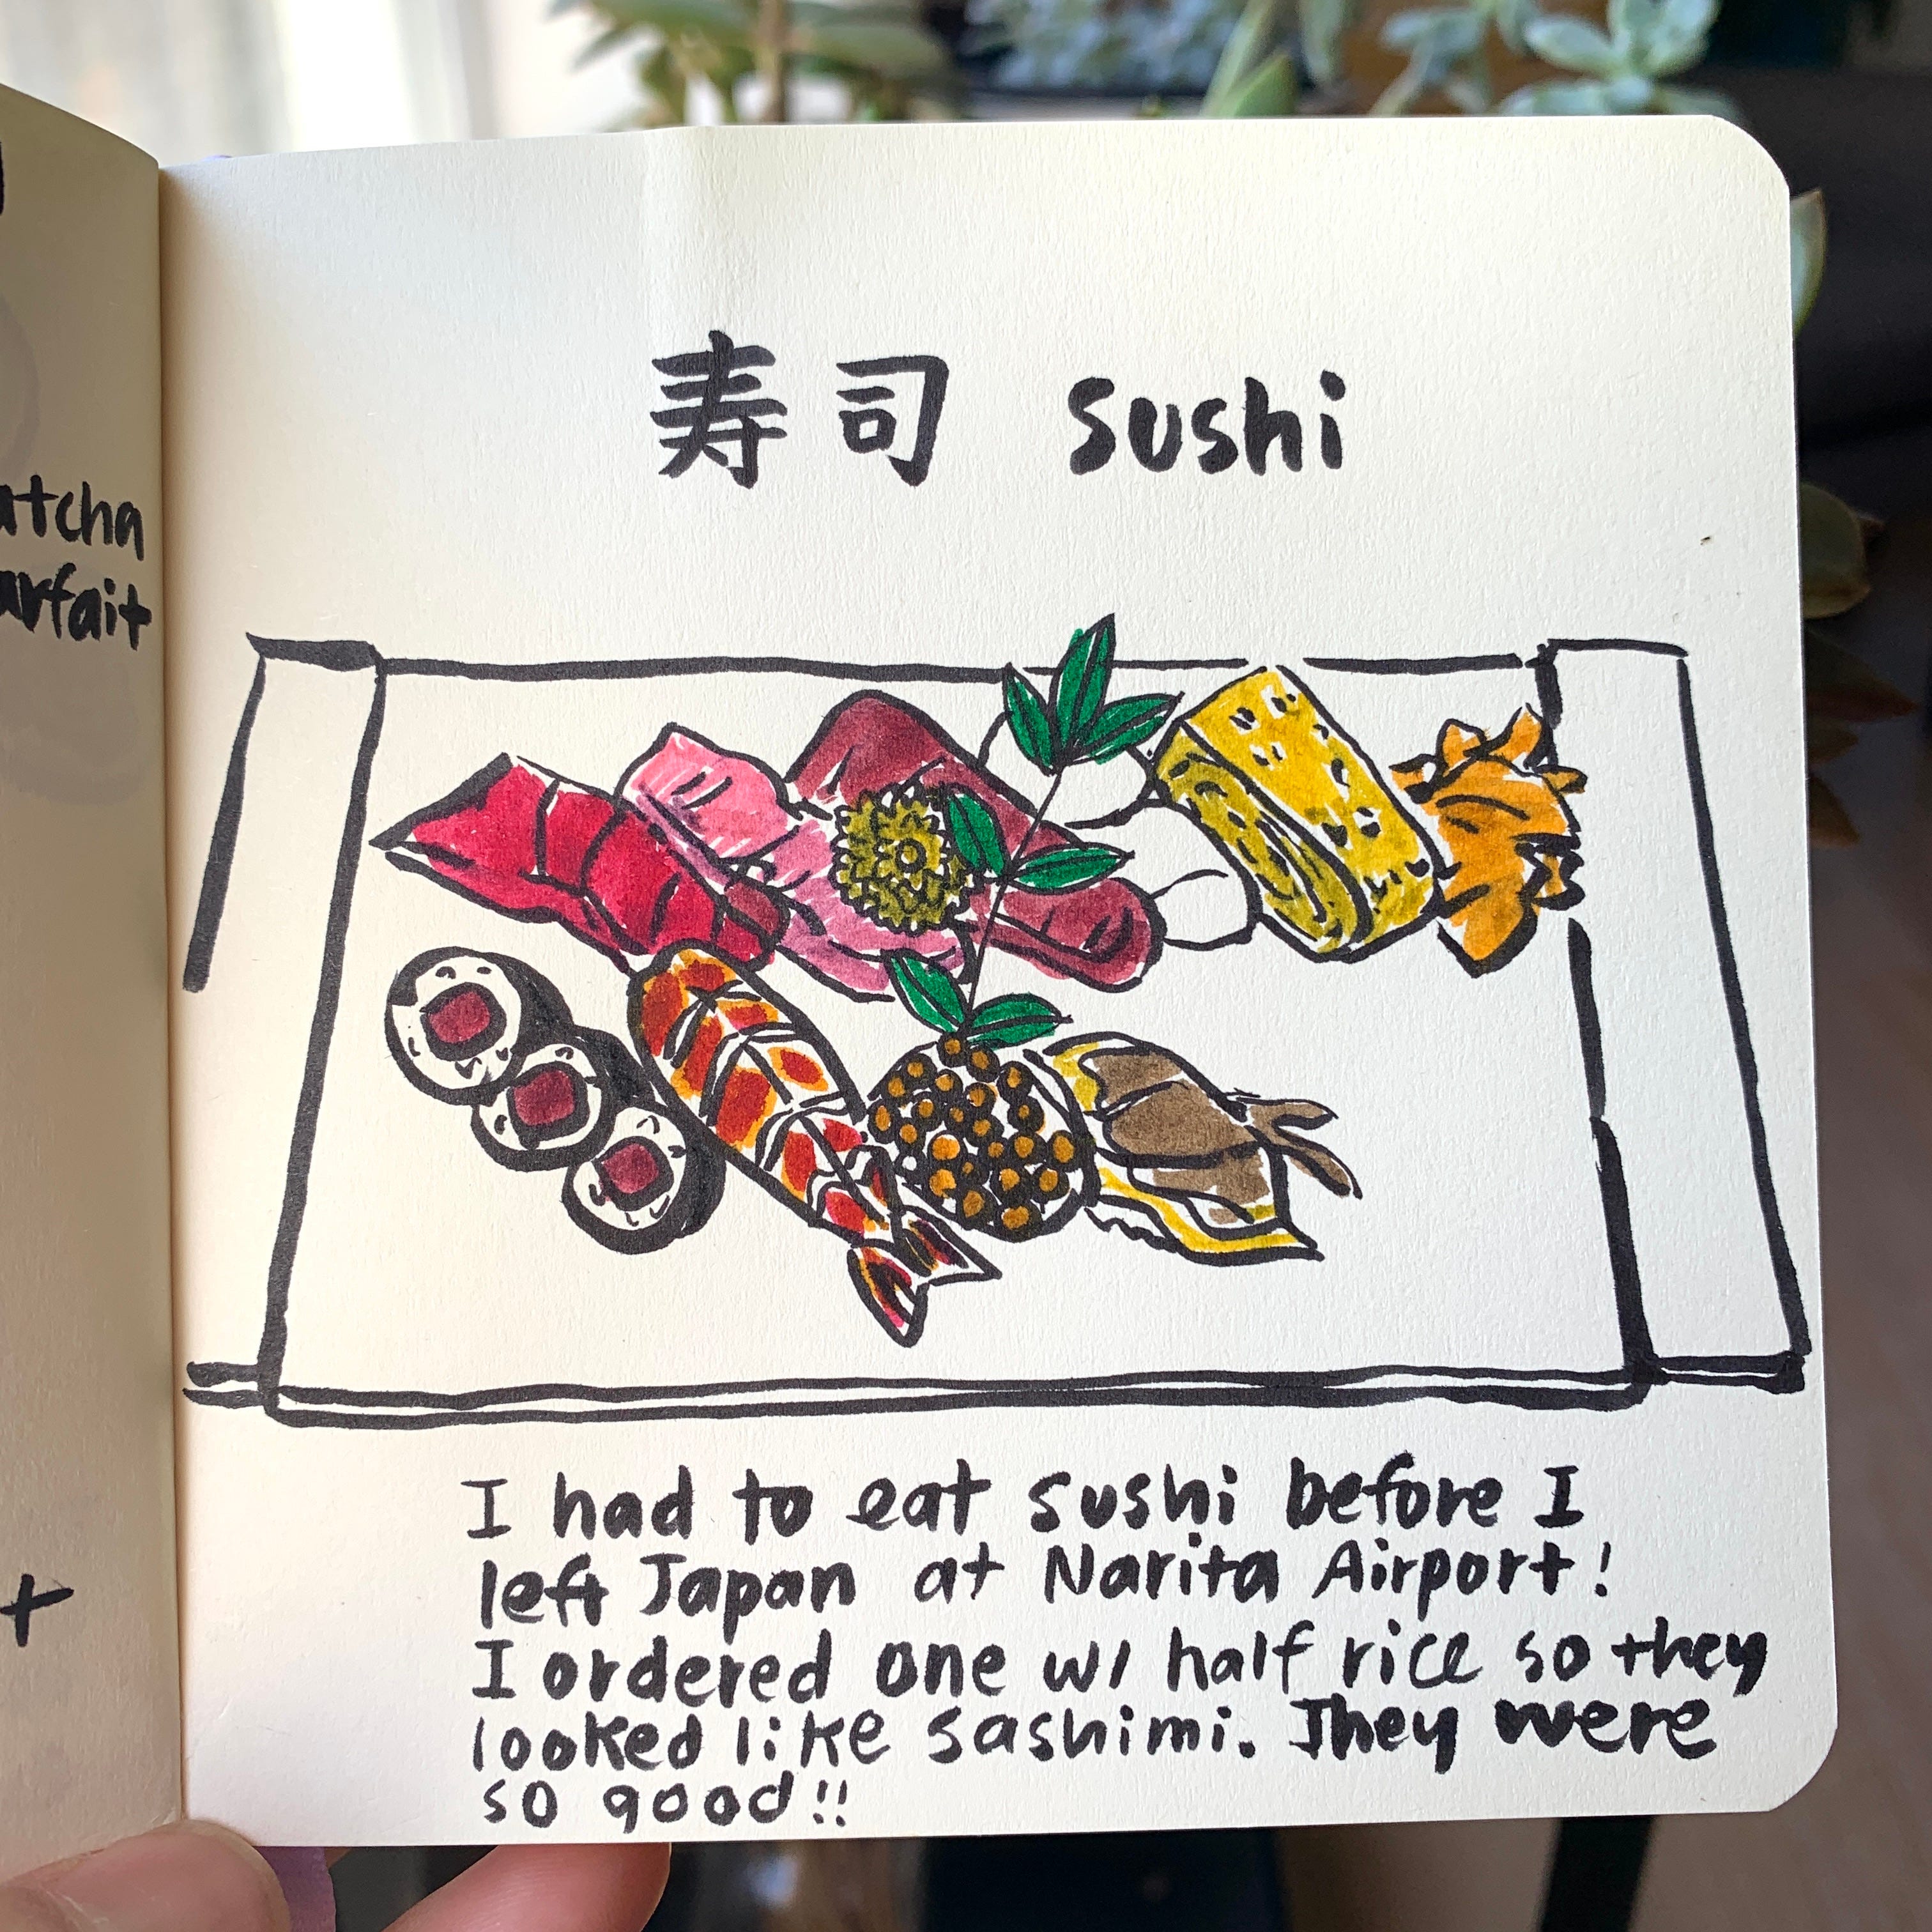 寿司 sushi
I had to eat sushi before I
left Japan at Narita Airport!
I ordered one w/ half rice so they
looked like sashimi. They were
so good!!